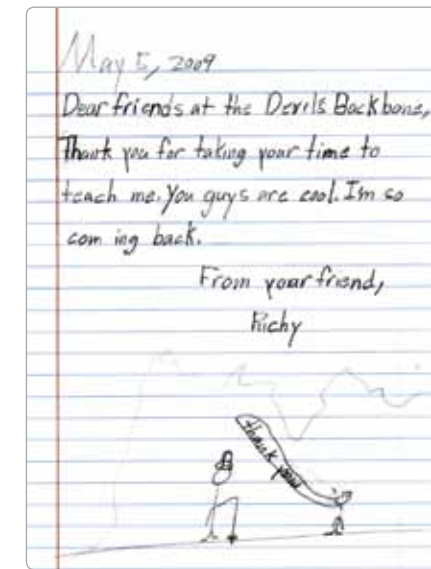 May 5, 2009
Dear friends at the Devils Backbone,
Thank you for taking your time to
teach me. You guys are cool. I'm so
com ing back.
From your friend,
Richy
thank you